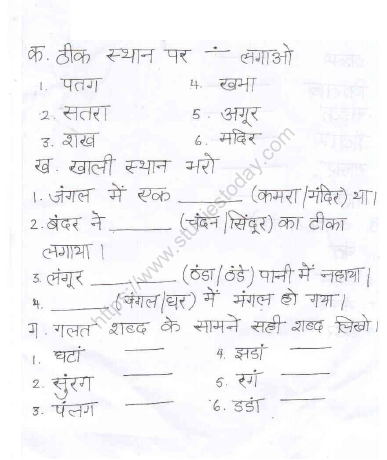 क. ठीक स्थान पर ∸ लगाओ
1. पतग 4. खभा
2. सतरा 5. अगूर
3. शख 6. मदिर
ख. खाली स्थान भरो
1. जंगल में एक ______ (कमरा/मंदिर) था।
2. बंदर ने ______ (चंदन/सिंदूर) का टीका
लगाया।
3. लंगूर ______ (ठंडा/ठंडे) पानी में नहाया।
4. ______ (जंगल/घर) में मंगल हो गया।
ग. गलत शब्द के सामने सही शब्द लिखो।
1. घटां ____ 4. झडां ____
2. सुंरग ____ 5. रगं ____
3. पंलग ____ 6. डडां ____
https://www.studiestoday.com